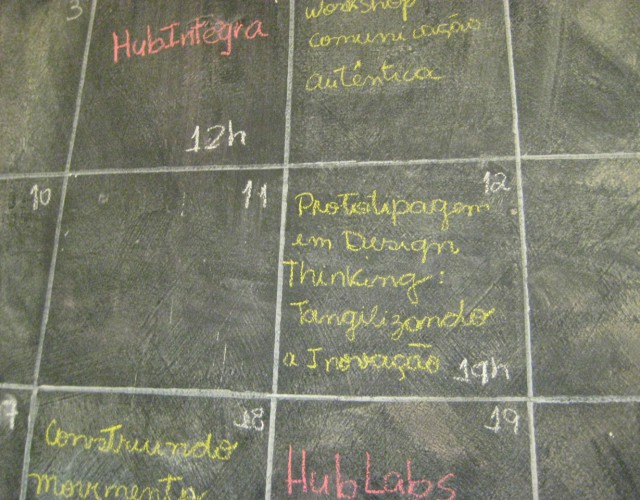 3
HubIntegra
12h
Workshop
comunicação
autêntica
10
11
12
Prototipagem
em Design
Thinking:
Tangilizando
a Inovação
19h
7
18
Construindo
movimento
19
HubLabs